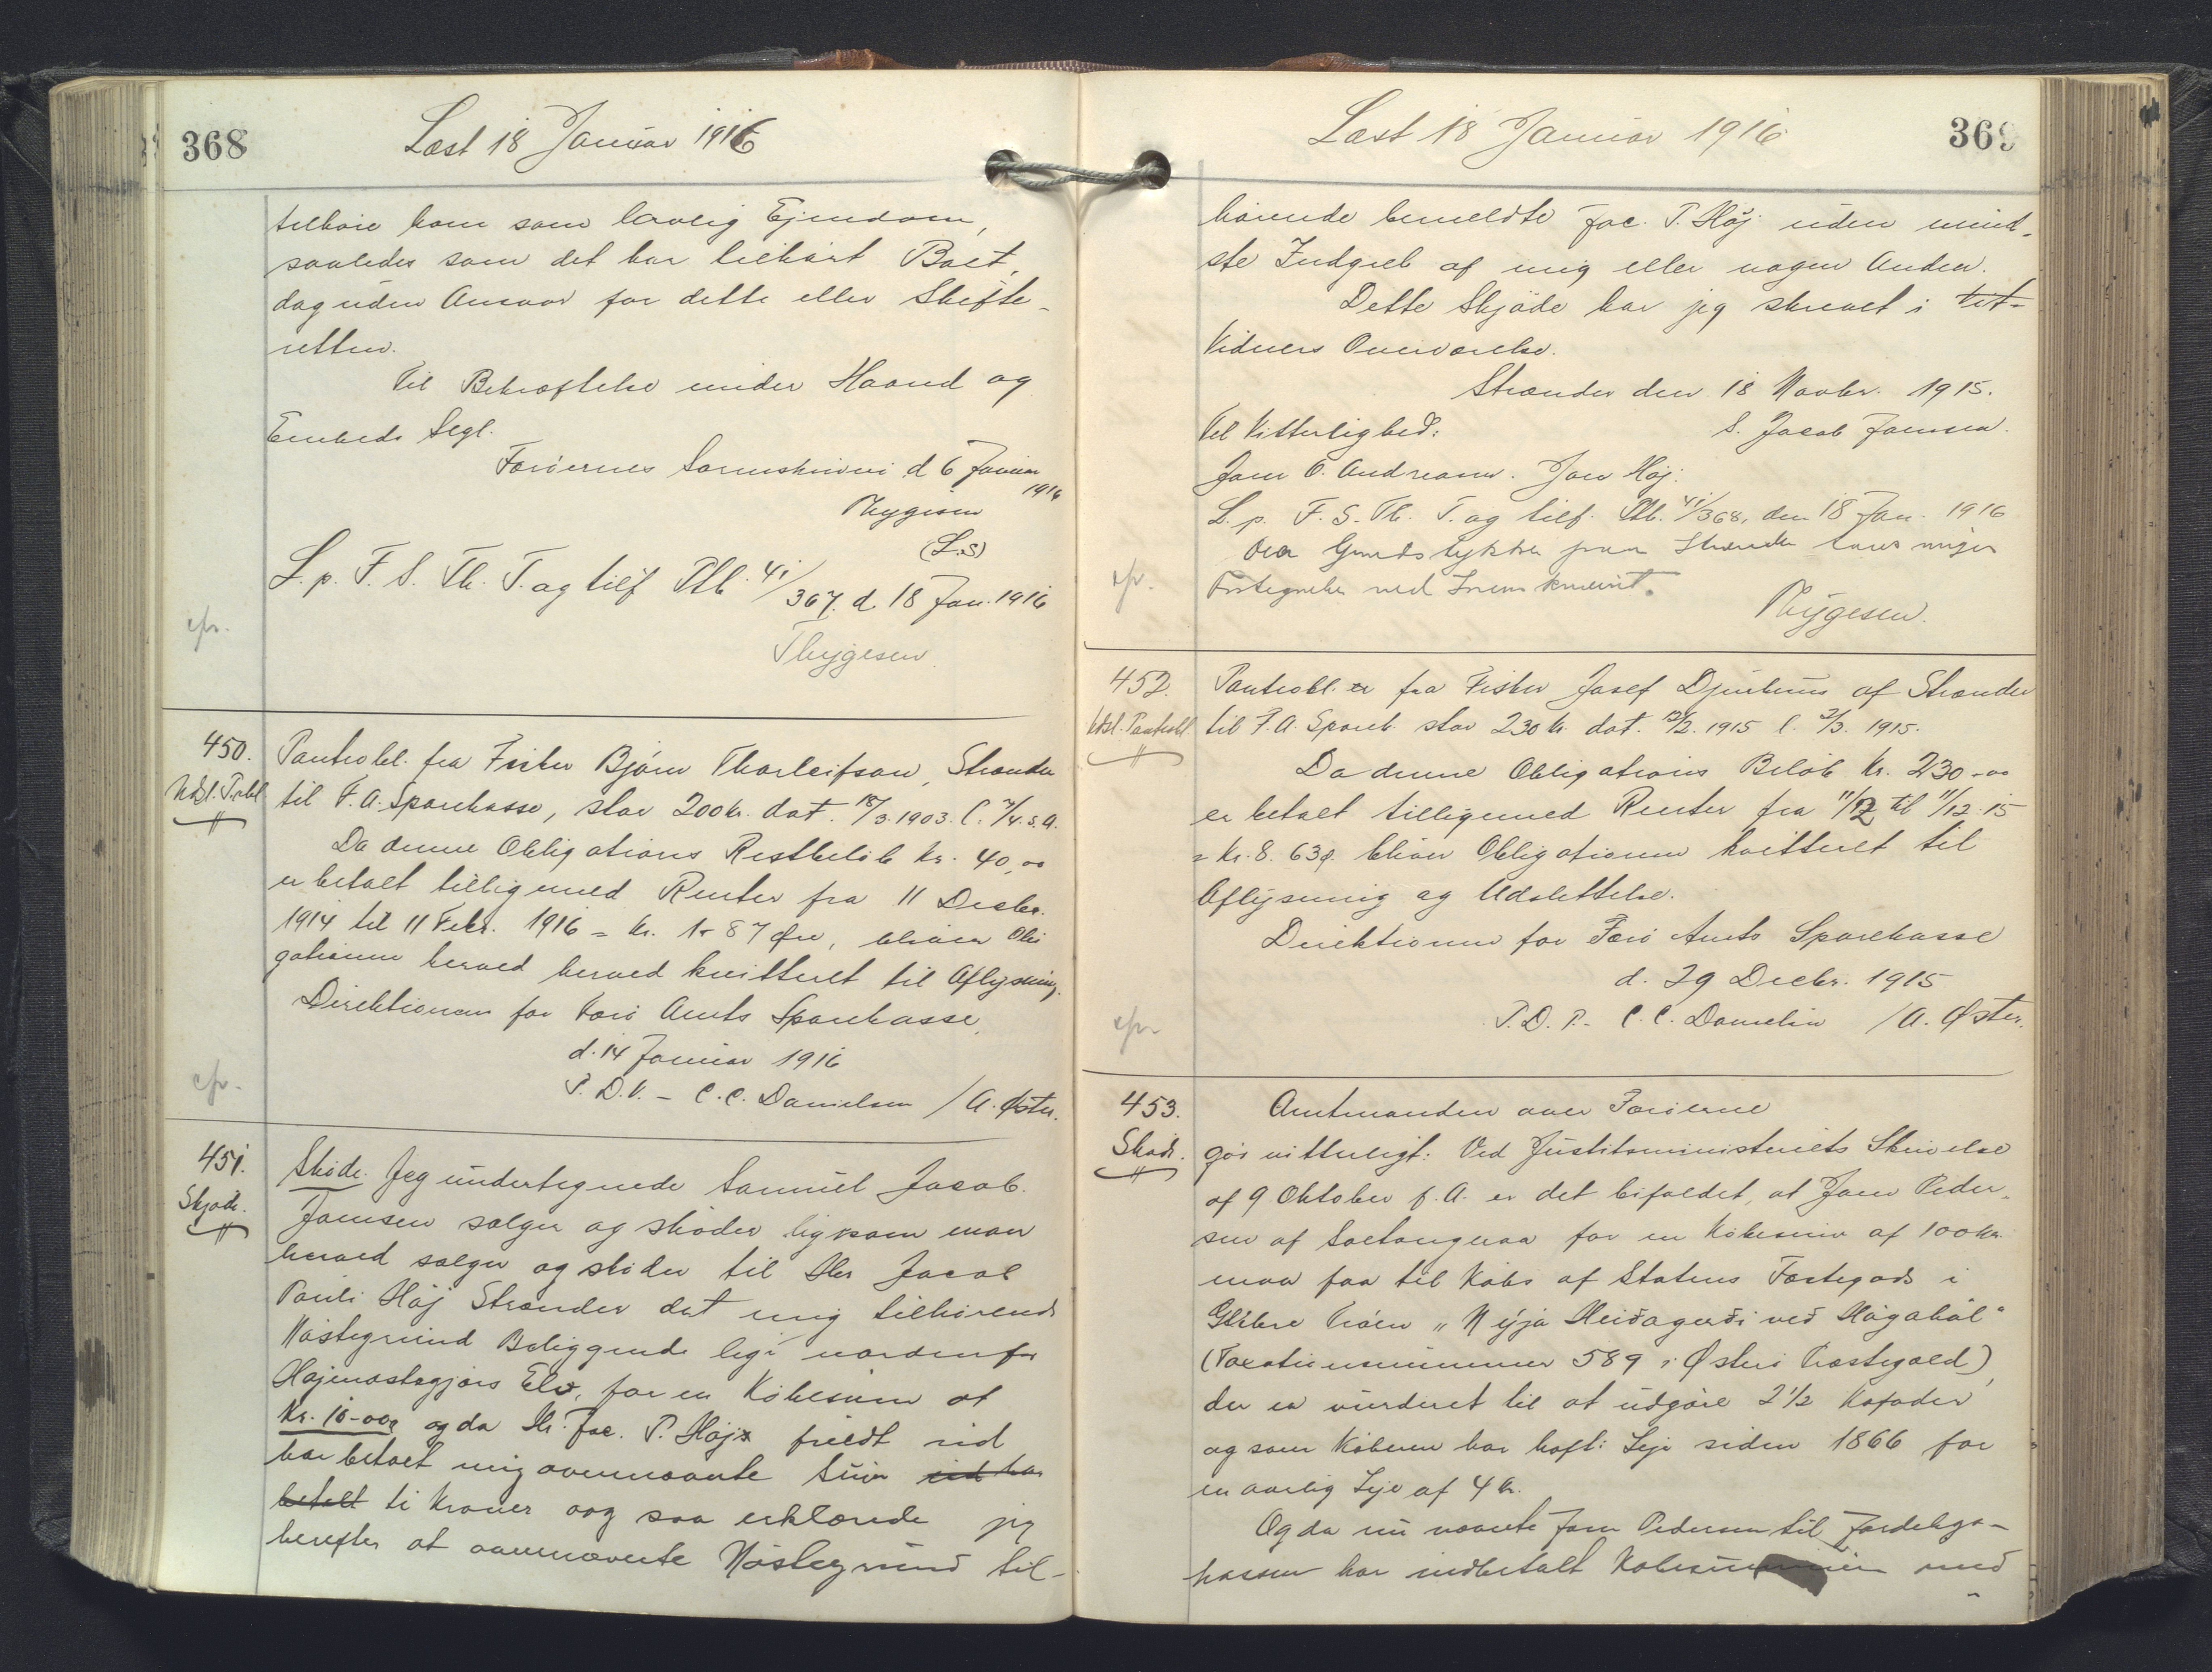 368
Læst 18 Januar 1916
tilhøre ham som lovlig Ejendom,
saaledes som det har tilhørt Boet,
dog uden Ansvar for dette eller Skifte-
retten.
Til Bekræftelse under Haand og
Embeds Segl.
Færøernes Sorenskriveri d 6 Januar
1916
Thygesen
(L.S)
L. p. F. S. Th. T. og tilf Ptk. 41/367. d 18 Jan. 1916
cfr.
Thygesen
450.
Udsl. P.obl
Pantrobl. fra Fisker Bjørn Thorleifson, Strænder
til F. A. Sparekasse, stor 200 kr. dat. 18/3 1903. l. 7/4. s. A.
Da denne Obligations Restbeløb Kr. 40,00
er betalt tilligemed Renter fra 11 Decbr.
1914 til 11 Febr. 1916 = Kr. 1- 87 Øre, bliver Obli
gationen herved herved kvitteret til Aflysning.
Direktionen for Færø Amts Sparekasse,
d. 14 Januar 1916
cfr.
P. D. V. - C. C. Danielsen / A. Øster.
451.
Skjøde.
Skøde. Jeg undertegnede Samuel Jacob
Joensen sælger og skøder ligesom man
herved sælger og skøder til Hr Jacob
Pauli Høj Strænder det mig tilhørende
Nøstegrund Beliggende lige nordenfor
Højenøstegjørs Elv, for en Købesum at
Kr. 10-00ø og da Hr. Jac. P. Høj fuldt ud
har betalt mig overnævnte Sum ud har
betalt ti Kroner og saa erklærede jeg
herefter at ovennævnte Nøstegrund til-
Læst 18 Januar 1916
369
hørende bemeldte Jac. P. Høj uden mind-
ste Indgreb af mig eller nogen Anden.
Dette Skjøde har jeg skrevet i tit-
Vidners Overværelse.
Strænder den 18 Novbr. 1915.
Til Vitterlighed:
S. Jacob Joensen.
Joen O. Andreasen. Jon Høj.
L. p. F. S. Th. T. og tilf. Ptk. 41/368, den 18 Jan. 1916
Over Grundstykker paa Strænder haves ingen
cfr.
Fortegnelse ved Sorenskriveriet.
Thygesen.
452.
Udsl. Pantobl.
Pantrobl. er fra Fisker Josef Djurhuus af Strænder
til F. A. Spark. stor 230 kr. dat. 12/2. 1915 l. 2/3. 1915.
Da denne Obligations Beløb Kr. 230-00
er betalt tilligemed Renter fra 11/12 til 11/12 15
= Kr. 8. 63ø. bliver Obligationen kvitteret til
Aflysning og Udslettelse.
Direktionen for Færø Amts Sparekasse
d. 29 Decbr. 1915
cfr
P. D. V. - C. C. Danielsen / A. Øster.
453.
Skøde.
Amtmanden over Færøerne
gør vitterligt: Ved Justitsministeriets Skrivelse
af 9 Oktober f. A. er det bifaldet, at Joen Peder-
sen af Saltangeraa for en Købesum af 100 Kr.
maa faa til Købs af Statens Fæstegods i
Glibre Trøen „Nýja Heiðagerði við Hágabøl"
(Taxationsnummer 589 i Østerø Præstegæld),
der er vurderet til at udgøre 2 1/2 Kofoder
og som Køberen har haft i Leje siden 1866 for
en aarlig Leje af 4 kr.
Og da nu nævnte Joen Pedersen til Jordebogs-
kassen har indbetalt Købesummen med